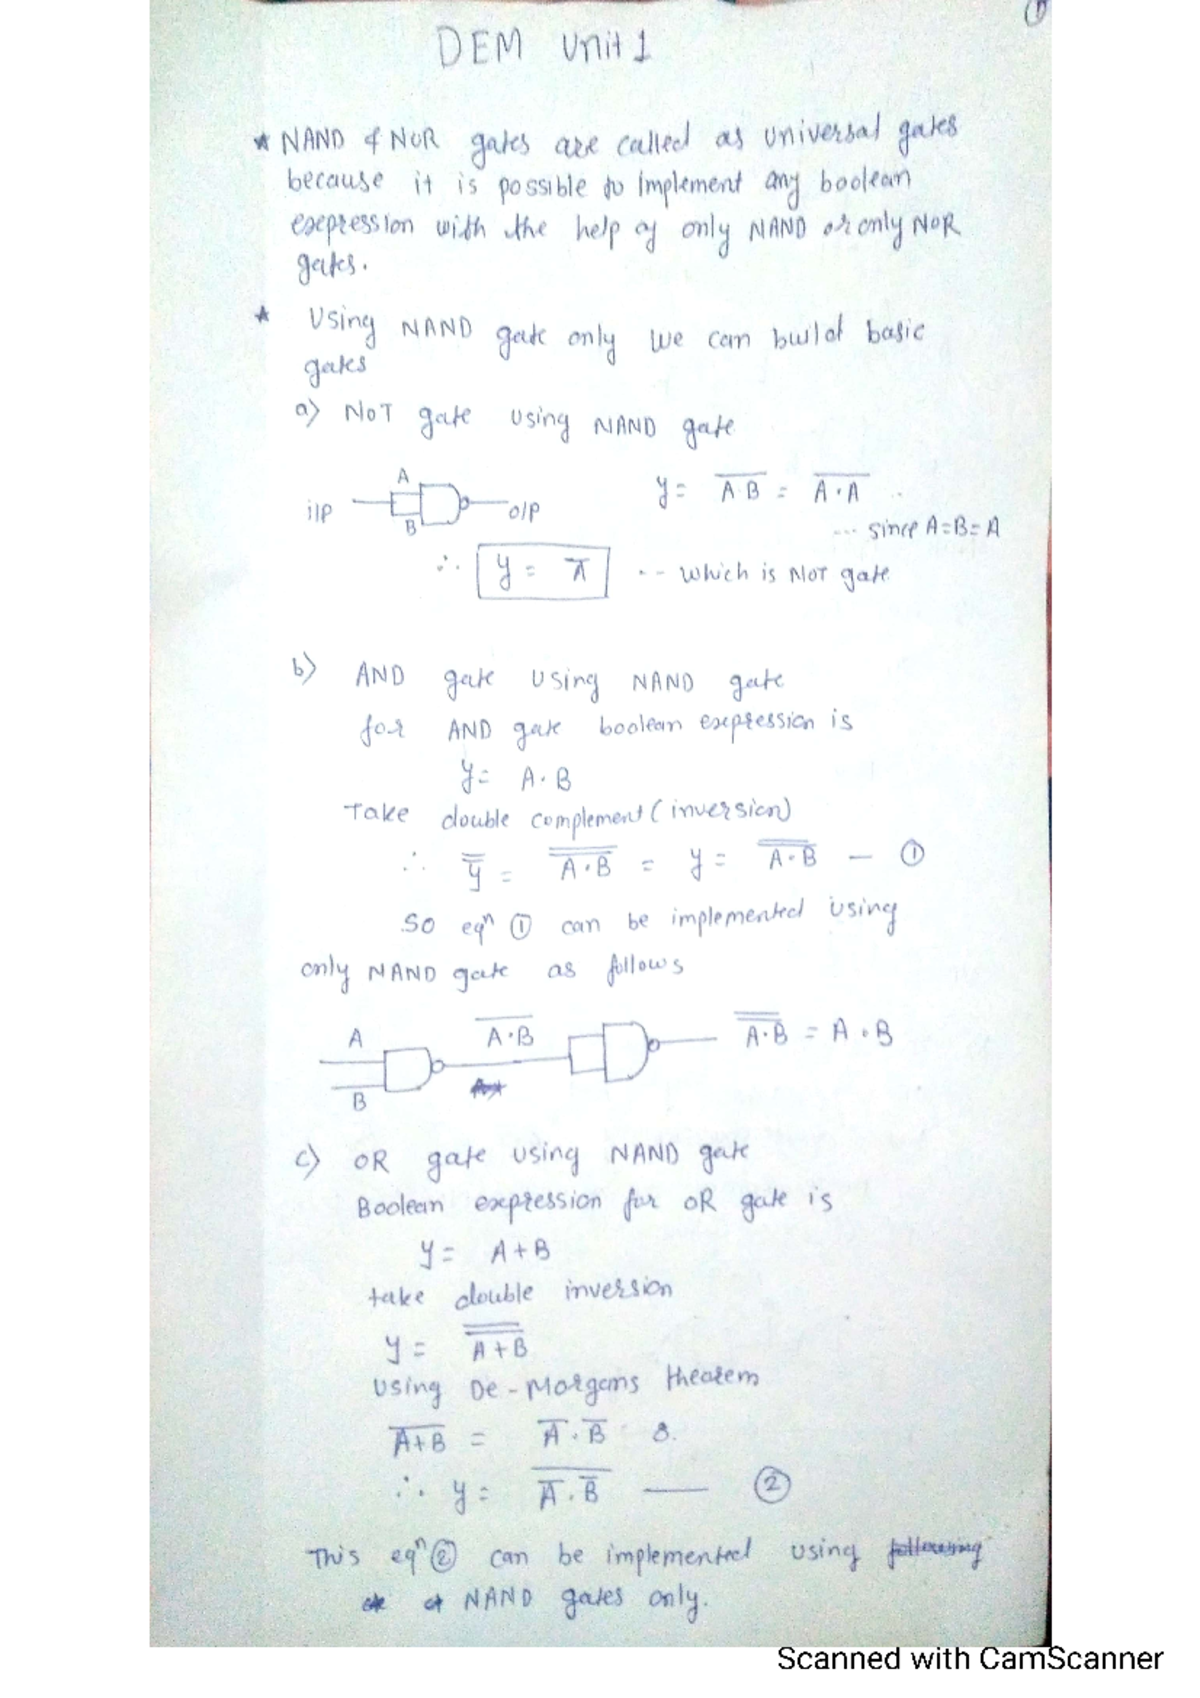 ①
DEM Unit 1
* NAND & NOR gates are called as universal gates
because it is possible to implement any boolean
expression with the help of only NAND or only NOR
gates.
* Using NAND gate only we can build basic
gates
a) NOT gate using NAND gate
A
i/p o/p
B
y = A̅·̅B̅ = A̅·̅A̅ ..
... since A=B=A
∴ y = A̅ -- which is NOT gate
b) AND gate using NAND gate
for AND gate boolean expression is
y = A·B
Take double complement (inversion)
∴ y̿ = A̿·̿B̿ = y = A̿·̿B̿ — ①
So eqⁿ ① can be implemented using
only NAND gate as follows
A A̅·̅B̅ A̿·̿B̿ = A·B
B
c) OR gate using NAND gate
Boolean expression for OR gate is
y = A+B
take double inversion
y = A̿+̿B̿
using De-Morgans thearem
A̅+̅B̅ = A̅·B̅
∴ y = \overline{A̅·B̅} — ②
This eqⁿ ② can be implemented using
NAND gates only.
Scanned with CamScanner